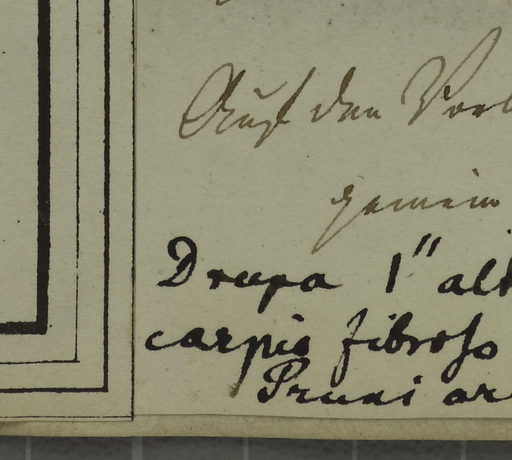 Auf den Vorb
gemein
Drupa 1" alt
carpio fibroso
Pruni ar